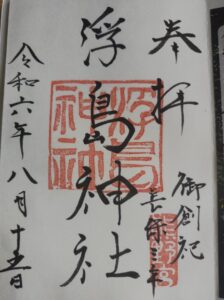 奉拝
御創祀
長保三年
浮島神社
令和六年八月十五日
浮島神社